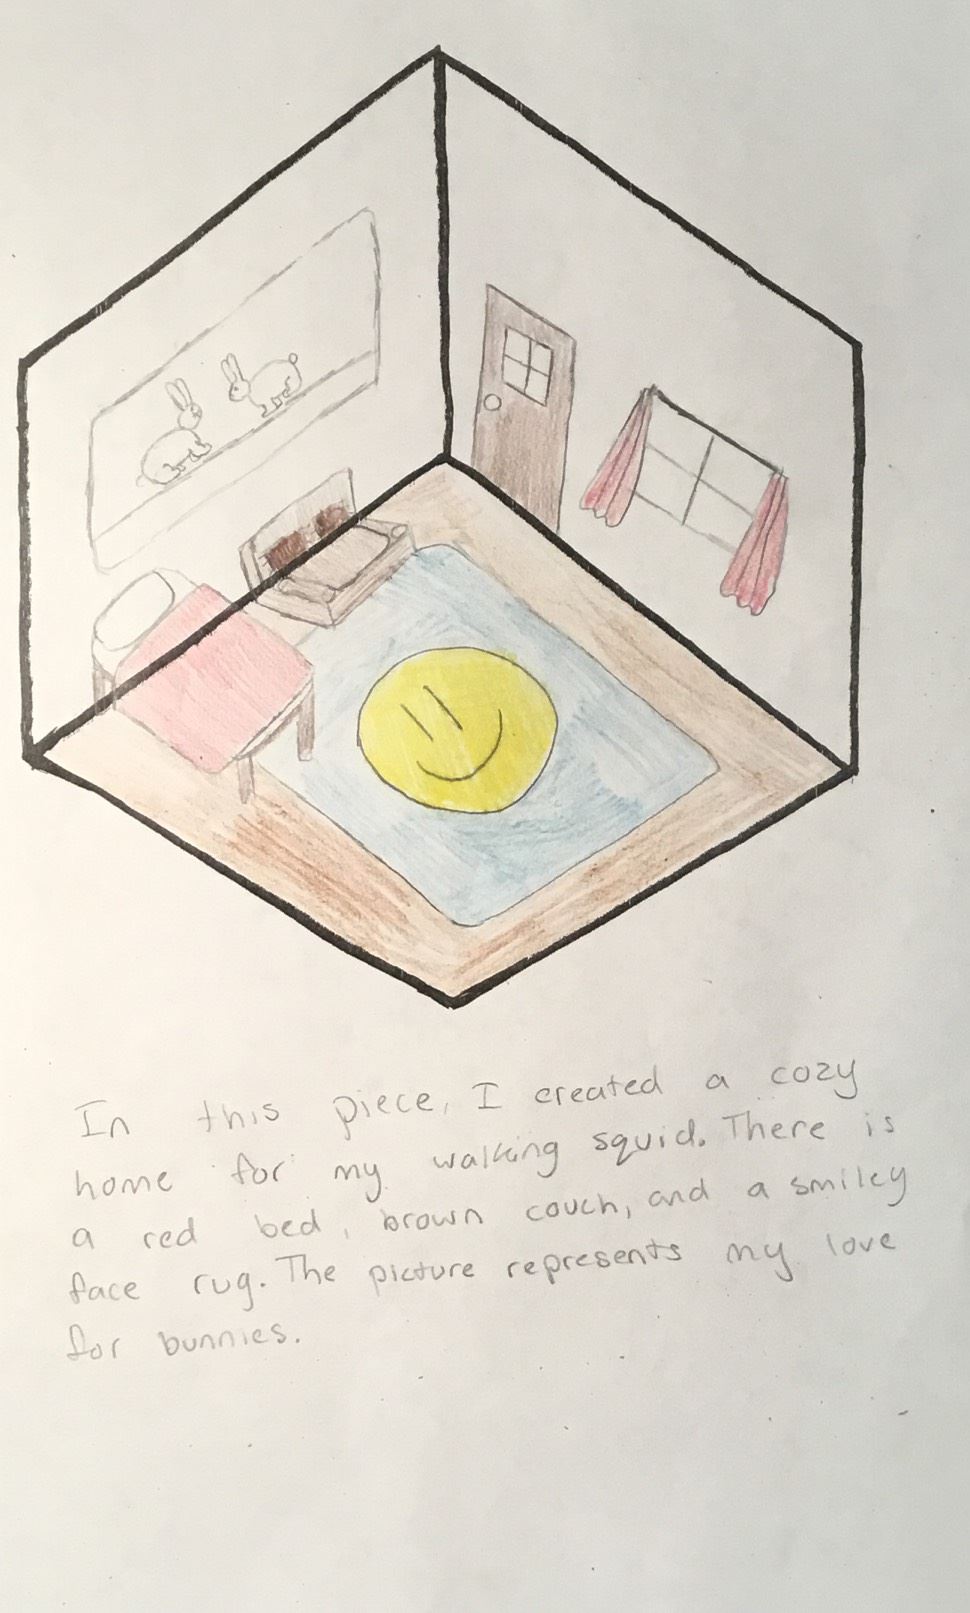 In this piece, I created a cozy
home for my walking squid. There is
a red bed, brown couch, and a smiley
face rug. The picture represents my love
for bunnies.